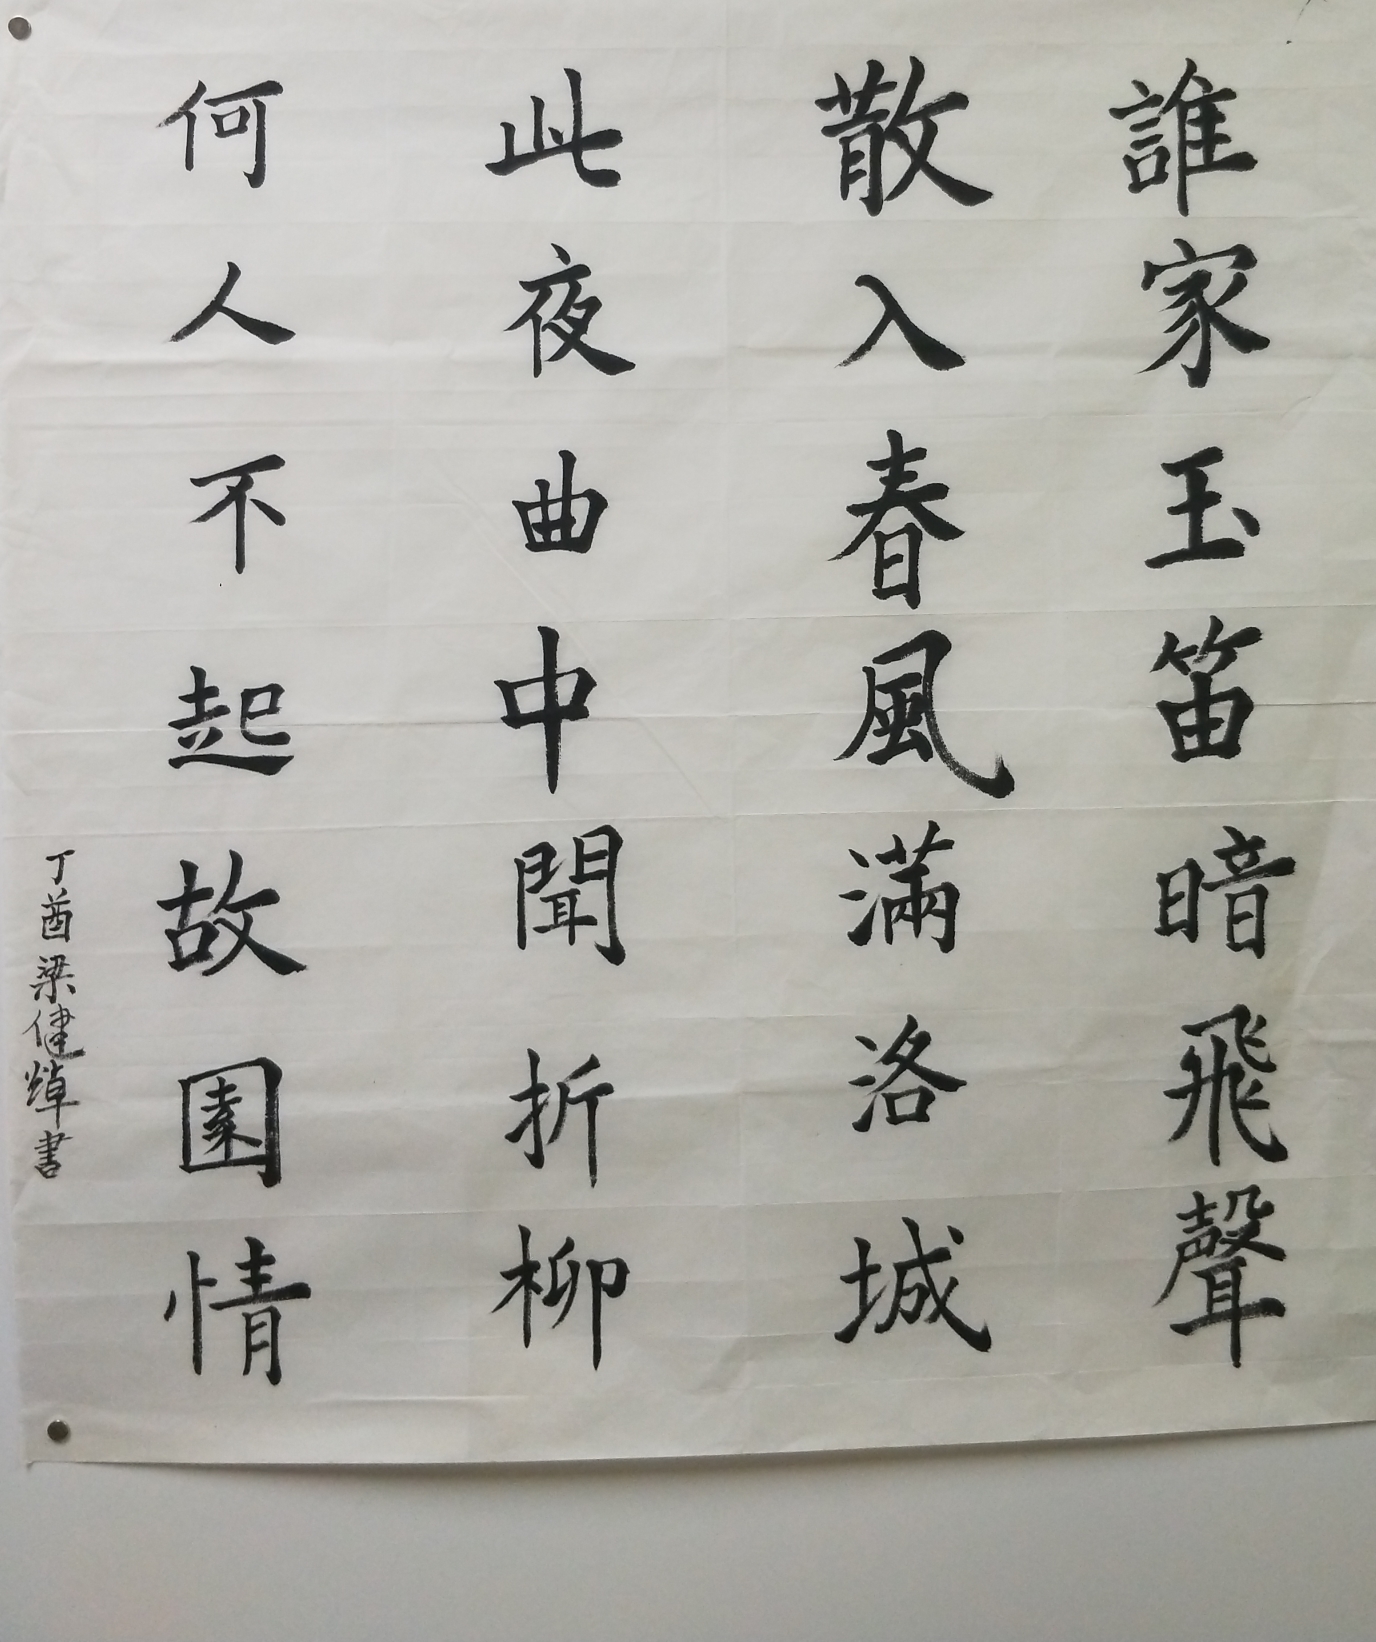 誰家玉笛暗飛聲
散入春風滿洛城
此夜曲中聞折柳
何人不起故園情
丁酉梁健煒書